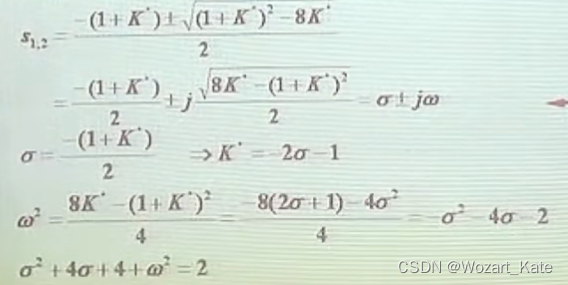 s₁,₂ = (-(1+K*) ± √((1+K*)² - 8K*)) / 2
= -(1+K*) / 2 ± j √(8K* - (1+K*)²) / 2 = σ ± jω
σ = -(1+K*) / 2 ⇒ K* = -2σ - 1
ω² = (8K* - (1+K*)²) / 4 = (-8(2σ+1) - 4σ²) / 4 = -σ² - 4σ - 2
σ² + 4σ + 4 + ω² = 2
CSDN @Wozart_Kate